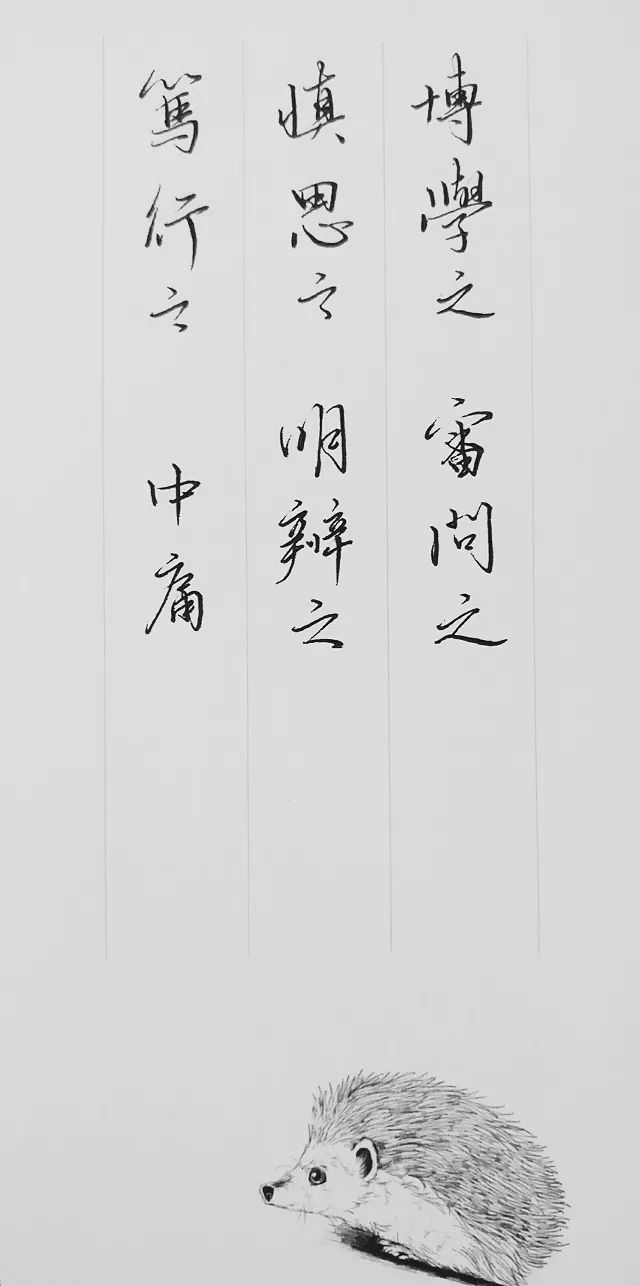 博學之 審問之
慎思之 明辯之
篤行之 中庸